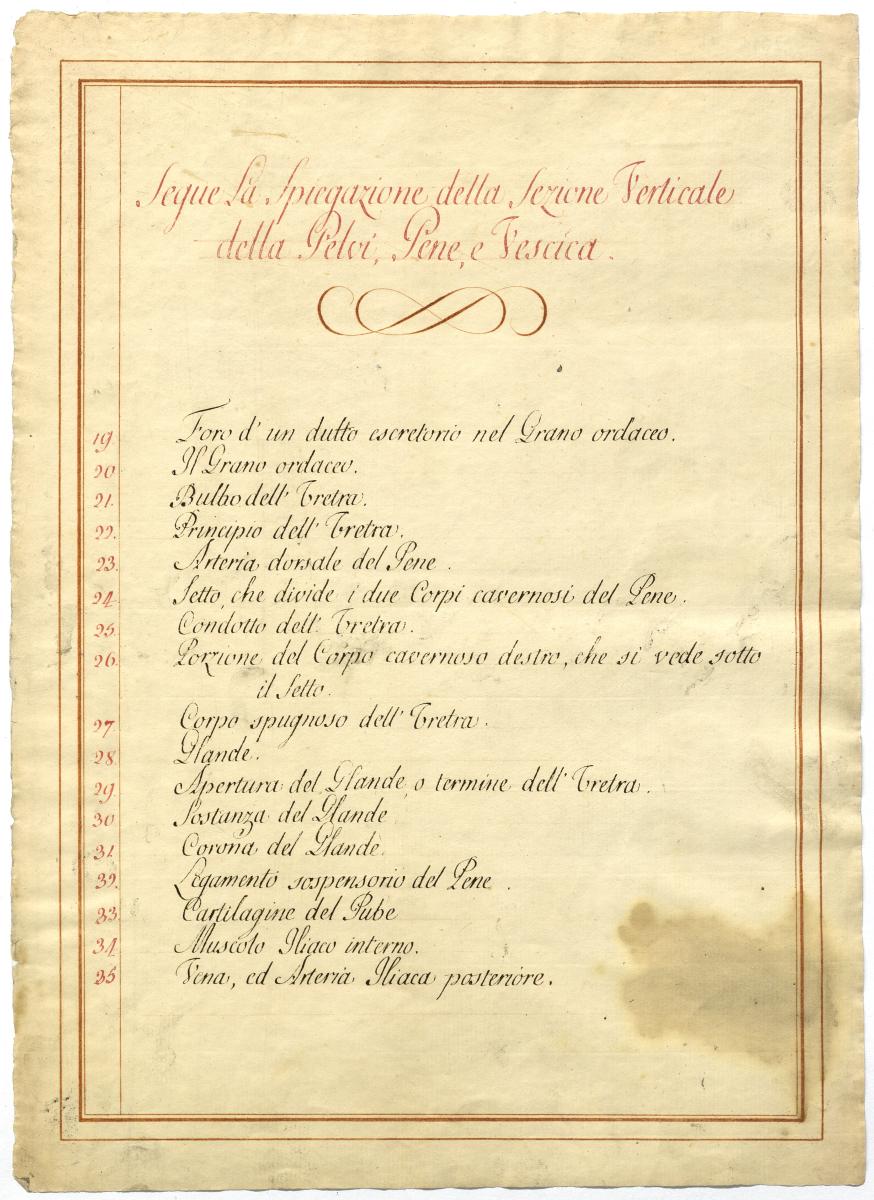 Segue La Spiegazione della Sezione Verticale
della Pelvi, Pene, e Vescica.
19 Foro d' un dutto escretorio nel Grano ordaceo.
20 Il Grano ordaceo.
21. Bulbo dell' Uretra.
22. Principio dell' Uretra.
23. Arteria dorsale del Pene.
24 Setto, che divide i due Corpi cavernosi del Pene.
25 Condotto dell' Uretra.
26. Porzione del Corpo cavernoso destro, che si vede sotto
il Setto.
27. Corpo spugnoso dell' Uretra.
28. Glande.
29. Apertura del Glande, o termine dell' Uretra.
30 Sostanza del Glande
31. Corona del Glande.
32. Legamento sospensorio del Pene.
33. Cartilagine del Pube
34. Muscolo Iliaco interno.
35 Vena, ed Arteria Iliaca posteriore.